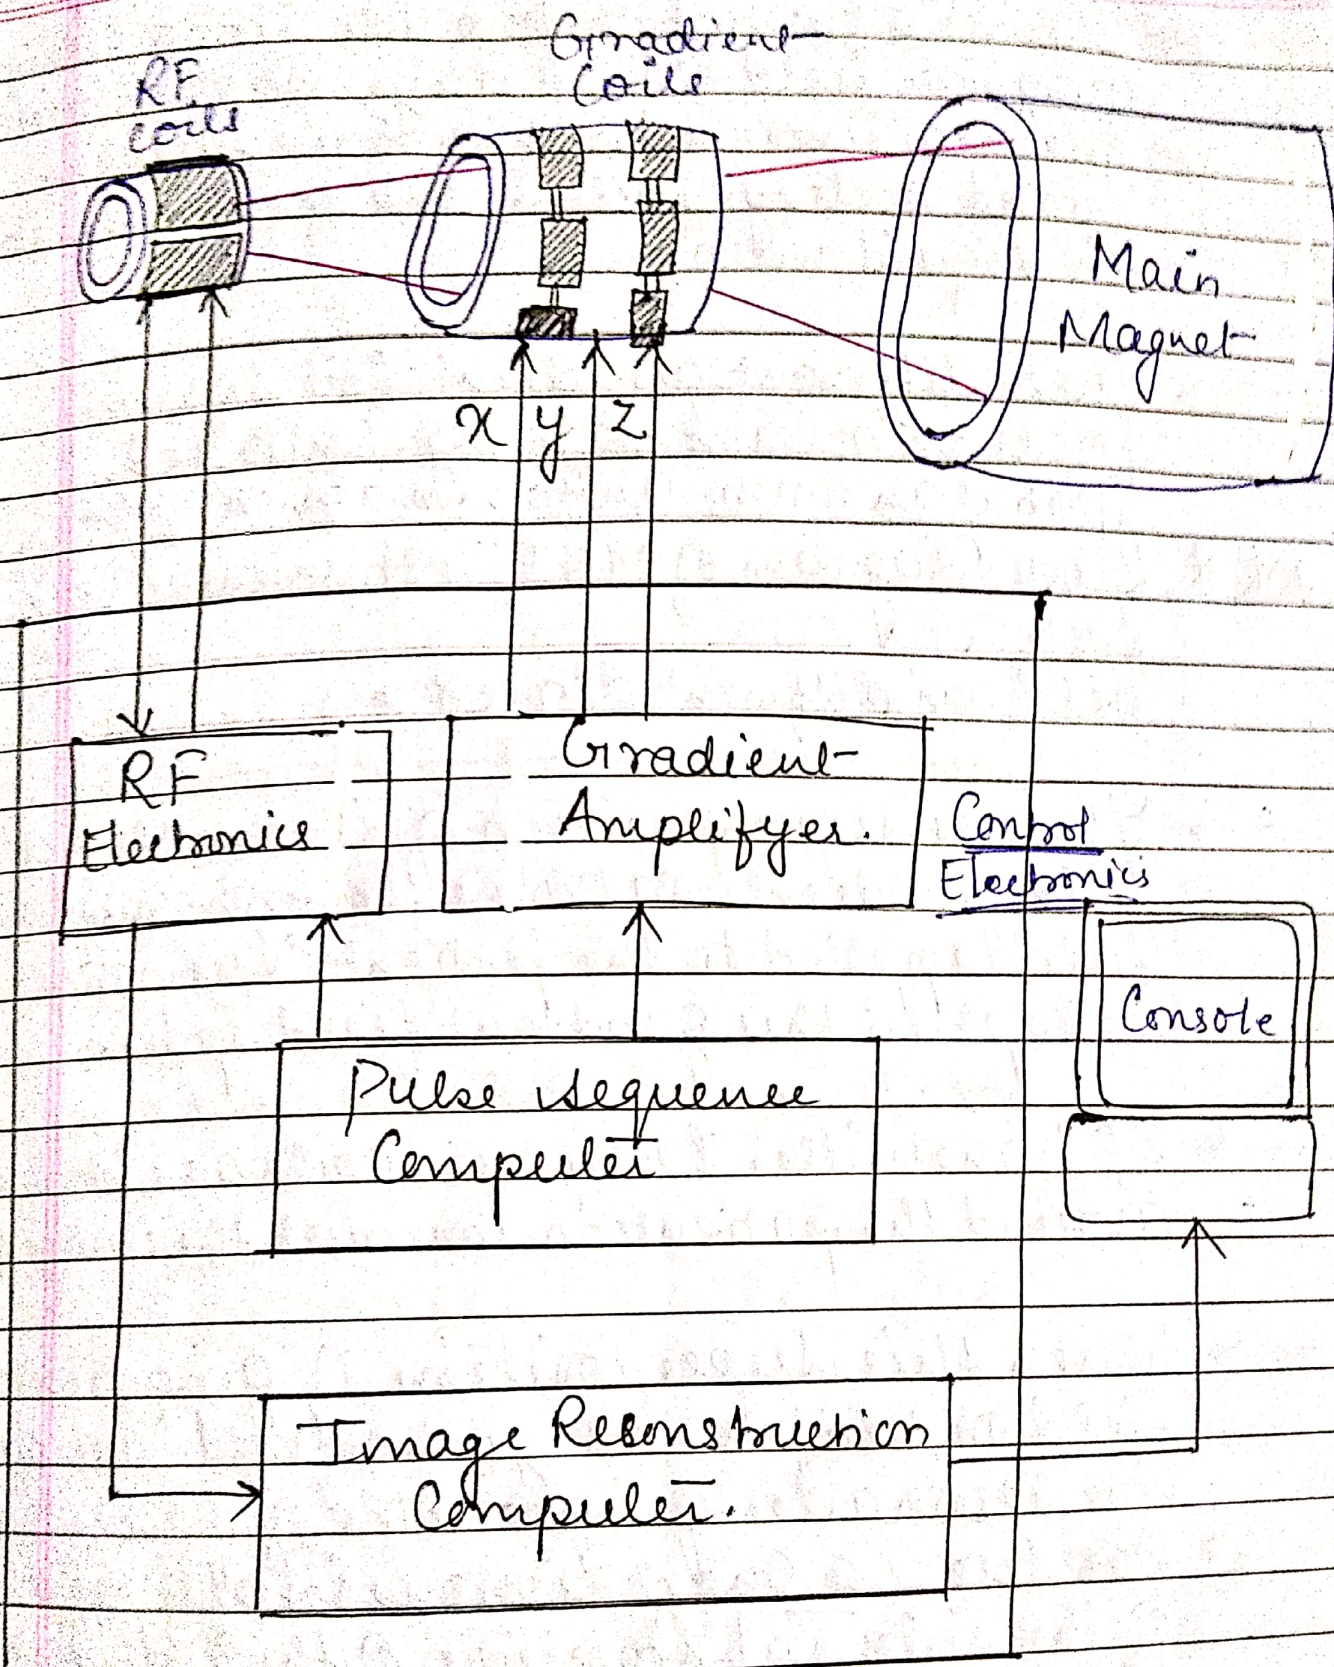 Gradient
Coils
RF
coils
Main
Magnet
x y z
RF
Electronics
Gradient
Amplifyer.
Control
Electronics
Console
Pulse sequence
Computer
Image Reconstruction
Computer.